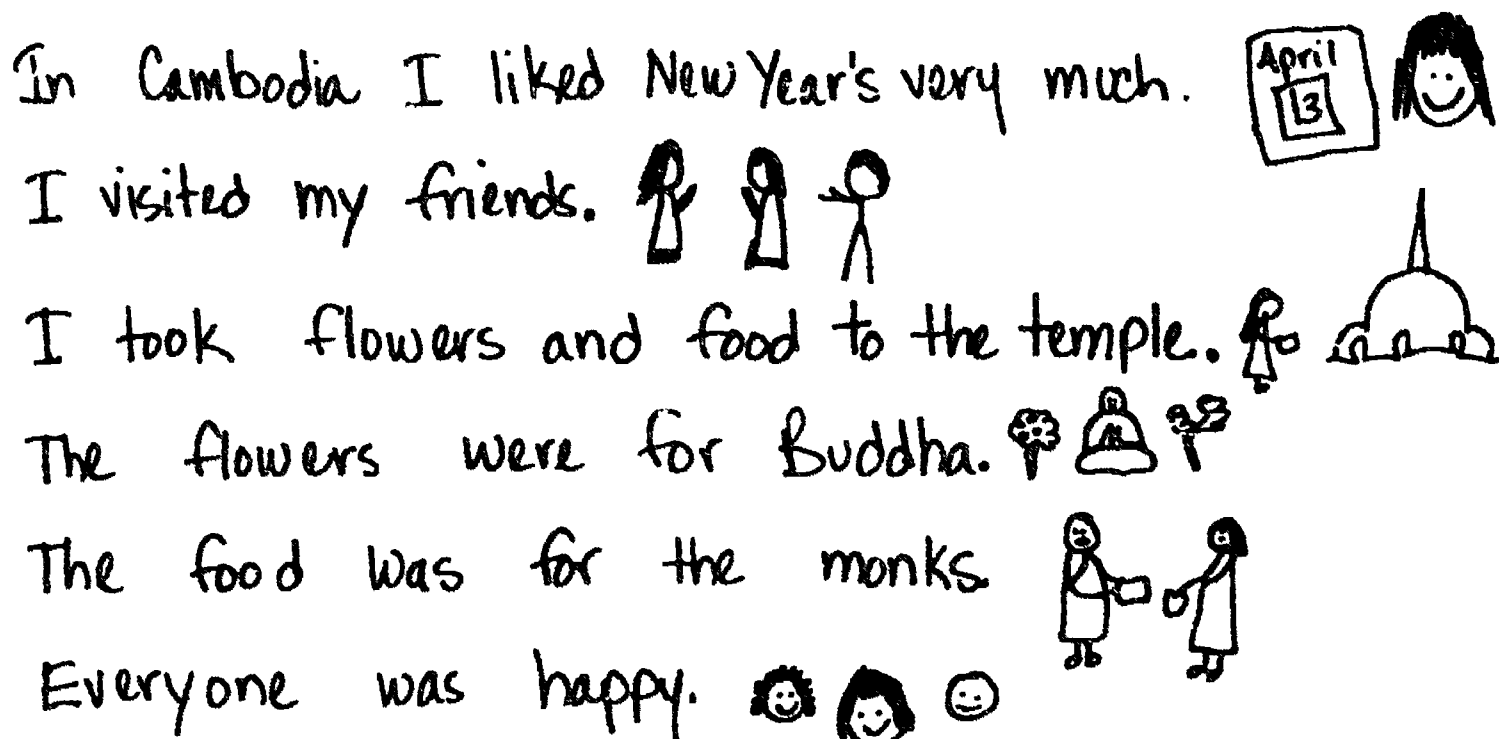 In Cambodia I liked New Year's very much. April 13
I visited my friends.
I took flowers and food to the temple.
The flowers were for Buddha.
The food was for the monks.
Everyone was happy.